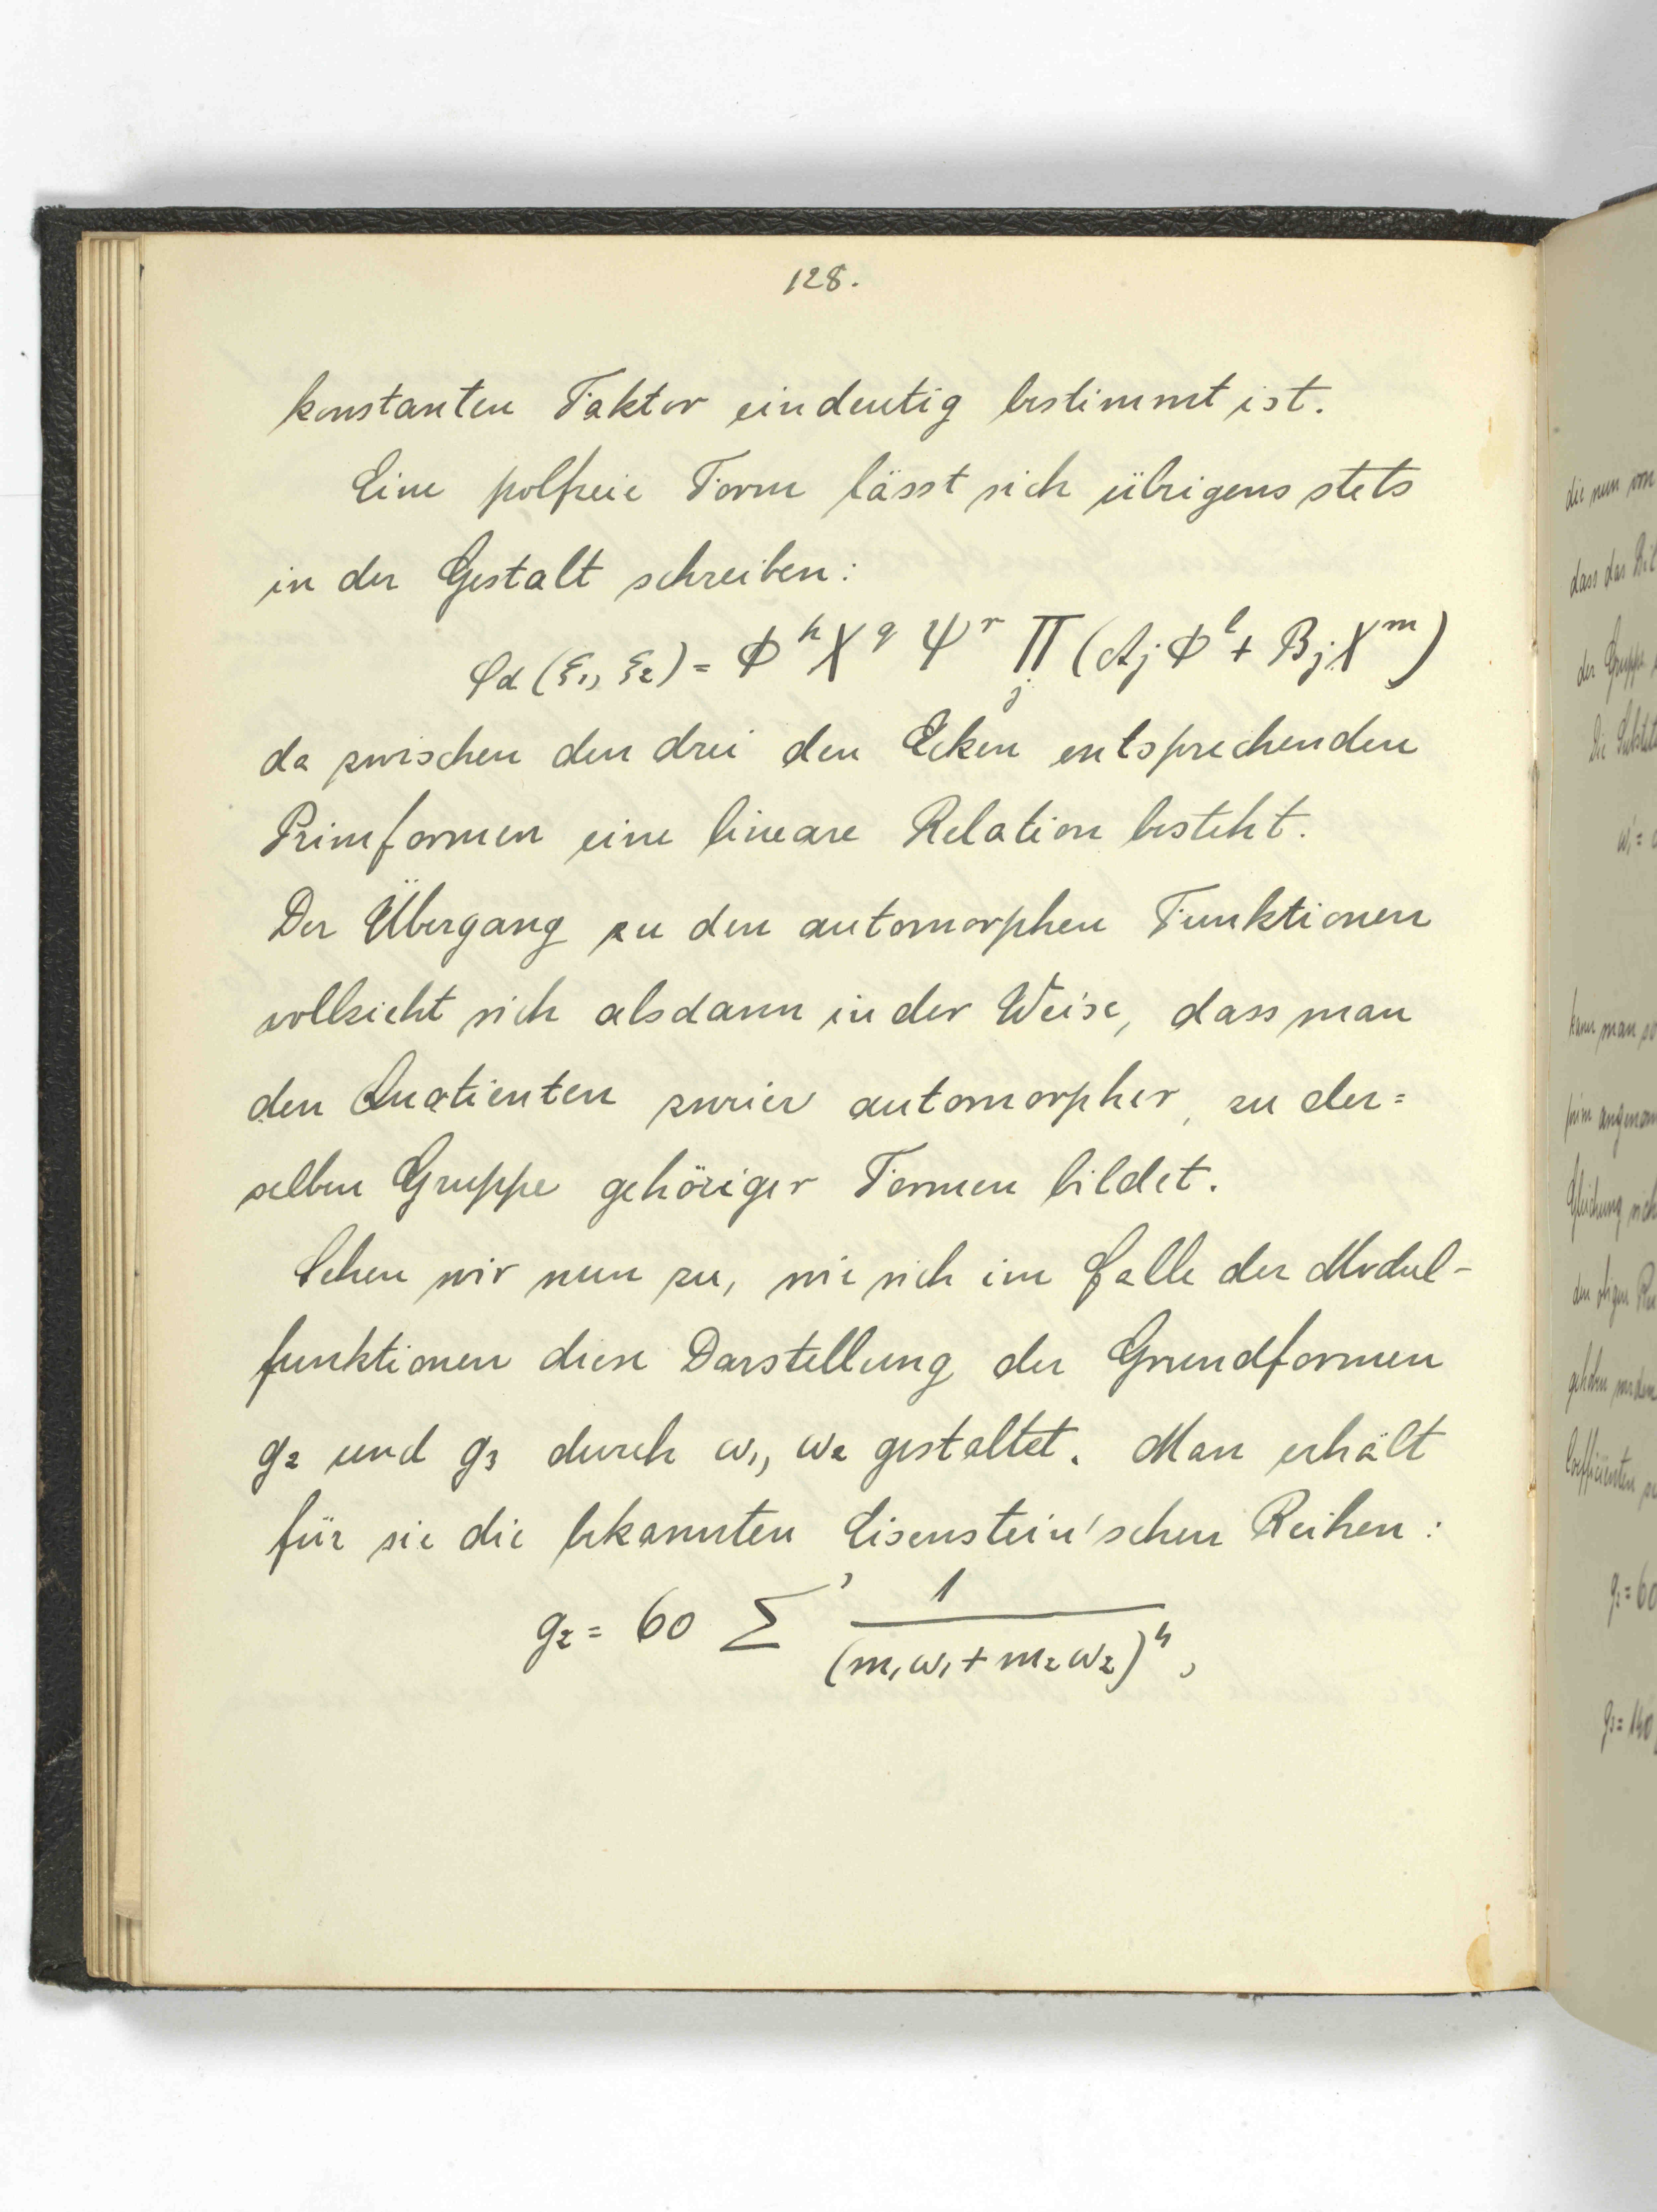 128.
konstanten Faktor eindeutig bestimmt ist.
Eine polfreie Form lässt sich übrigens stets
in der Gestalt schreiben:
φα (ξ₁, ξ₂) = Φ^h Χ^q Ψ^r ∏_j (A_j Φ^l + B_j Χ^m)
da zwischen den drei den Ecken entsprechenden
Primformen eine lineare Relation besteht.
Der Übergang zu den automorphen Funktionen
vollzieht sich alsdann in der Weise, dass man
den Quotienten zweier automorpher, zu der=
selben Gruppe gehöriger Formen bildet.
Sehen wir nun zu, wie sich im Falle der Modul-
funktionen diese Darstellung der Grundformen
g₂ und g₃ durch ω₁, ω₂ gestaltet. Man erhält
für sie die bekannten Eisenstein'schen Reihen:
g₂ = 60 Σ' 1/(m₁ω₁ + m₂ω₂)⁴,
die nun von
dass das
der Gruppe
Die
kann man so
prim
Gleichung sich
den obigen
gehoben werden
Coefficienten
g₂ = 60
g₃ = 140